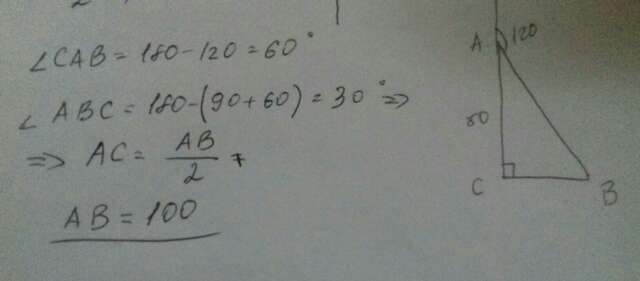 ∠CAB = 180 - 120 = 60°
∠ABC = 180 - (90 + 60) = 30° =>
=> AC = AB/2
AB = 100
A 120
50
C
B